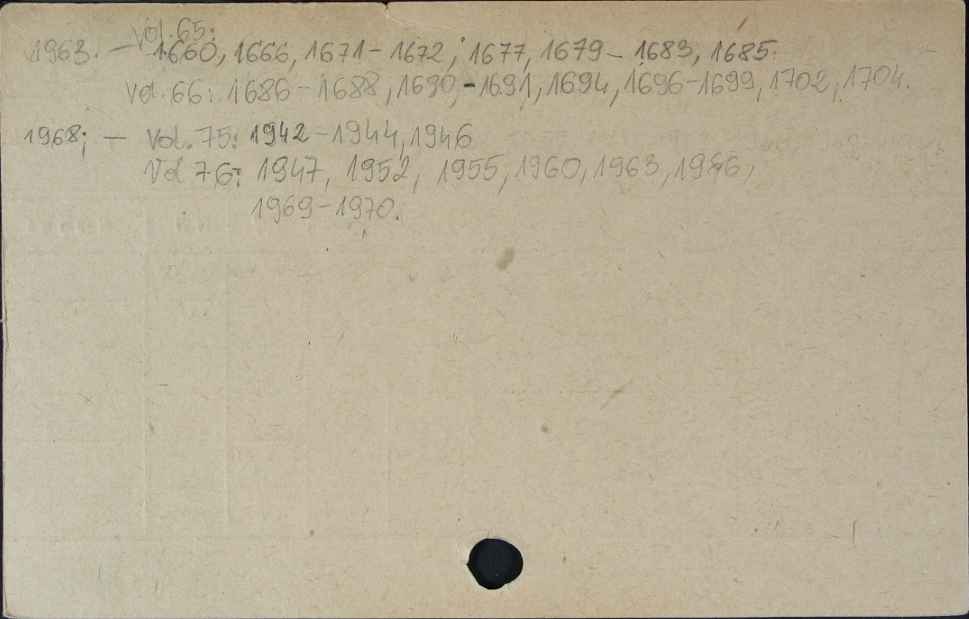 Vol. 65:
1963. — 1660, 1666, 1671-1672, 1677, 1679-1683, 1685.
Vol. 66: 1686-1688, 1690,-1691, 1694, 1696-1699, 1702, 1704.
1968; — Vol. 75: 1942-1944, 1946
Vol 76: 1947, 1952, 1955, 1960, 1963, 1966,
1969-1970.